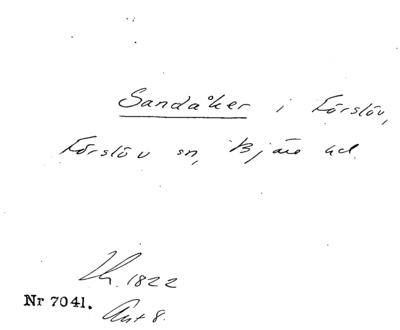 Sandåker i Förslöv,
Förslöv sn, Bjäre hd.
Lh. 1822
Nr 7041.
Akt 8.